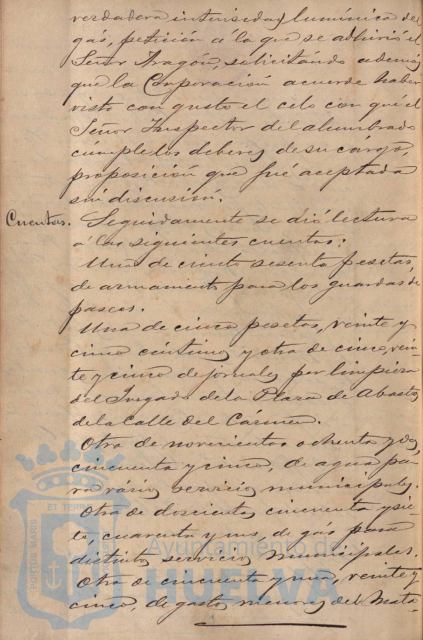 verdadera intensidad lumínica del
gas, petición á la que se adhirió el
Señor Aragón, solicitando además
que la Corporación acuerde haber
visto con gusto el celo con que el
Señor Inspector del alumbrado
cumple los deberes de su cargo,
proposición que fué aceptada
sin discusión.
Cuentas. Seguidamente se dió lectura
á las siguientes cuentas:
Una de ciento sesenta pesetas,
de armamento para los guardas de
paseos.
Una de cinco pesetas, veinte y
cinco céntimos y otra de cinco, vein-
te y cinco de jornales por limpieza
del Juzgado de la Plaza de Abastos
de la Calle del Cármen.
Otra de novecientos ochenta y dos
cincuenta y cinco, de agua pa-
ra varios servicios municipales.
Otra de doscientos cincuenta y sie-
te, cuarenta y uno, de gás para
distintos servicios municipales.
Otra de cincuenta y una, veinte y
cinco, de gastos menores del Mata-
PORTUS MARIS
ET TERRAE
Ayuntamiento de
HUELVA